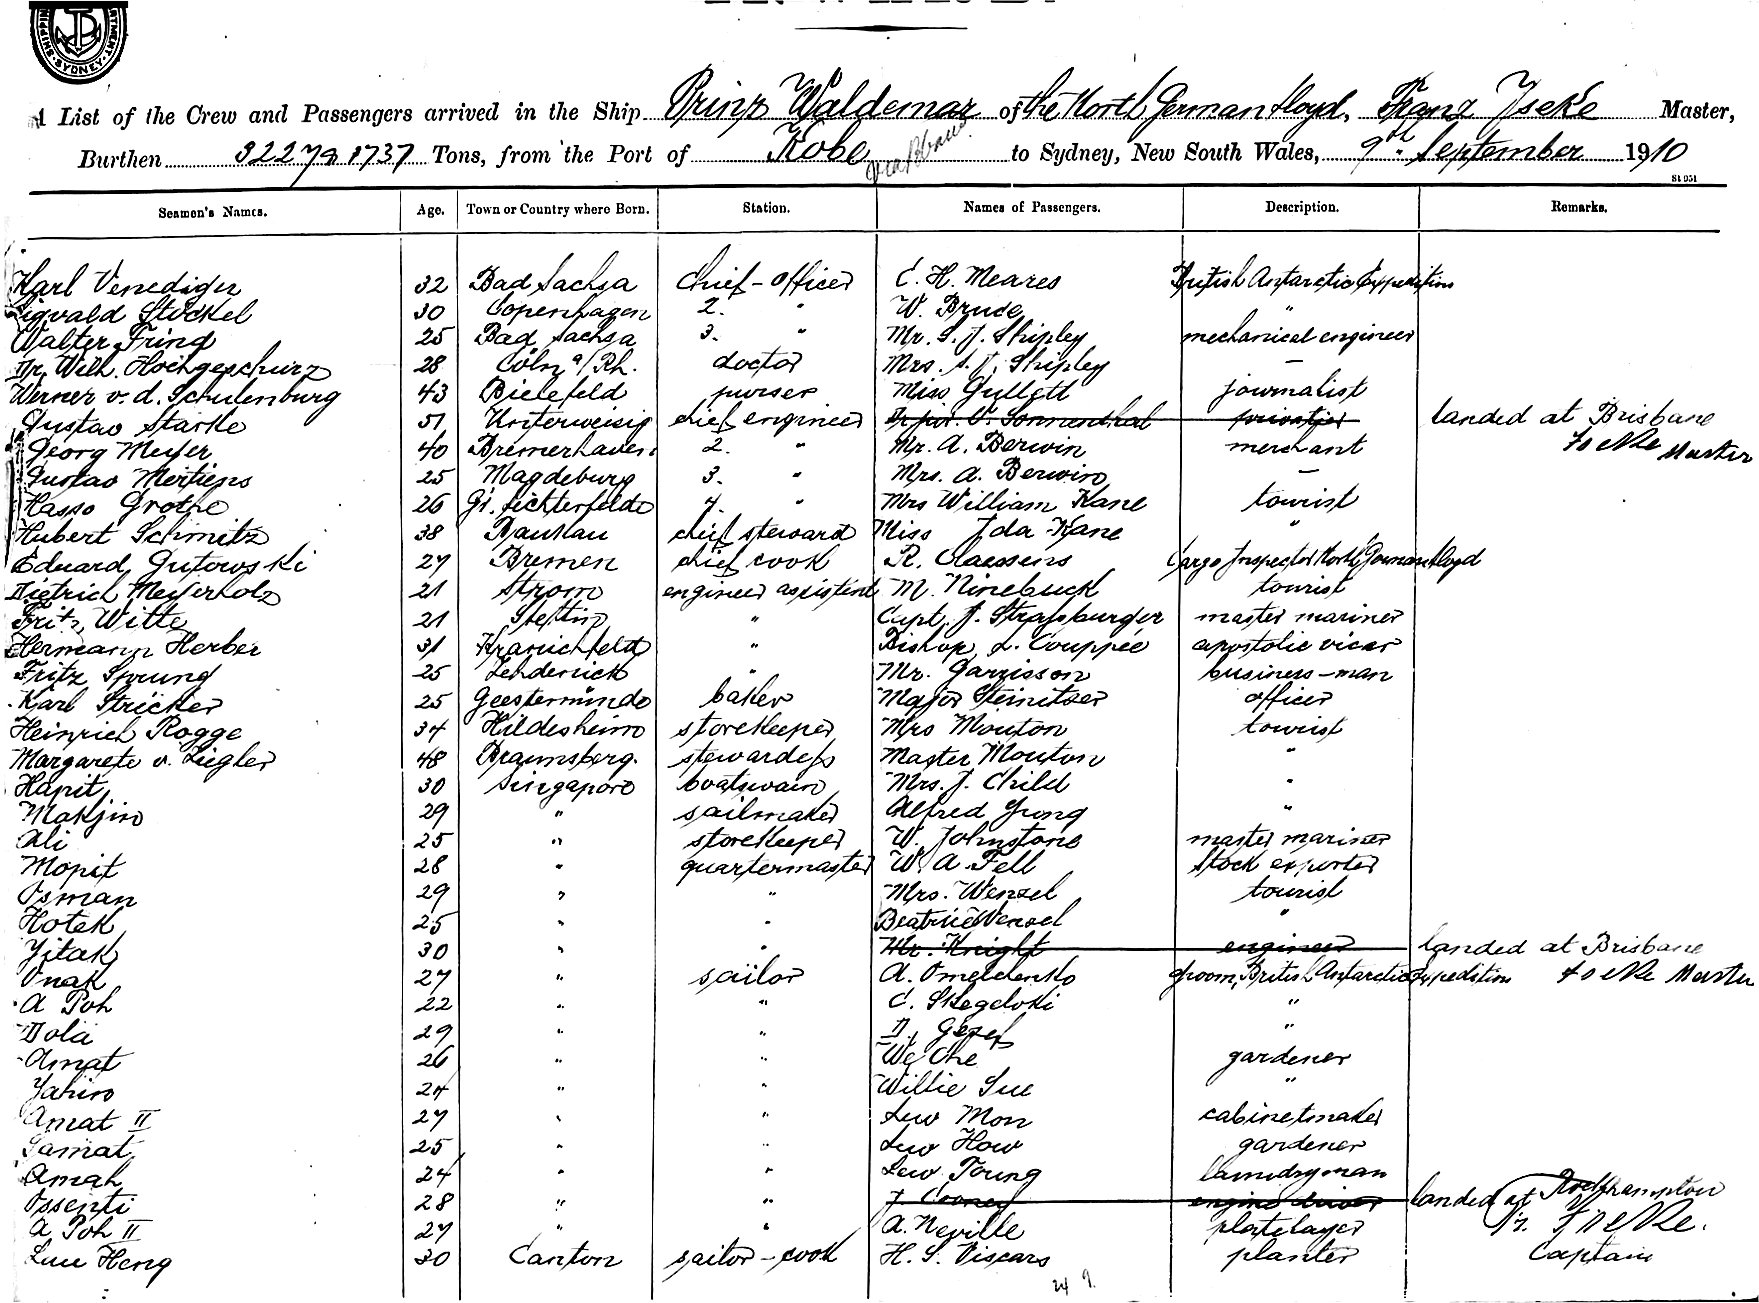 SHIPPING
SYDNEY
A List of the Crew and Passengers arrived in the Ship Prinz Waldemar of the North German Lloyd, Franz Iseke Master,
Burthen 3227 & 1737 Tons, from the Port of Kobe via Brisbane to Sydney, New South Wales, 9th September 1910
St 951
Seamen's Names. Age. Town or Country where Born. Station. Names of Passengers. Description. Remarks.
Karl Venediger 32 Bad Sachsa chief-officer C. H. Meares British Antarctic Expedition
Sigvald Stöckel 30 Copenhagen 2. " W. Bruce "
Walter Fring 25 Bad Sachsa 3. " Mr. S. J. Shipley mechanical engineer
Dr. Wilh. Hochgeschurz 28 Cöln a/Rh. doctor Mrs. S. J. Shipley —
Werner v. d. Schulenburg 43 Bielefeld purser Miss Gullett journalist
Gustav Starke 51 Unterweisig chief engineer Sonnenthal landed at Brisbane
Georg Meyer 40 Bremerhaven 2. " Mr. A. Berwin merchant Iseke Master
Gustav Mertiens 25 Magdeburg 3. " Mrs. A. Berwin —
Hasso Grothe 26 Gr. Lichterfelde 4. " Mrs William Kane tourist
Hubert Schmitz 38 chief steward Miss Ida Kane "
Eduard Gutowski 27 Bremen chief cook R. Claessens Cargo Inspector North German Lloyd
Dietrich Meyerholz 21 Strom engineer assistent M. Ninebuck tourist
Fritz Witte 21 Stettin " Capt. J. Strassburger master mariner
Hermann Herber 31 Kranichfeld " Bishop L. Couppée apostolic vicar
Fritz Sprung 25 Zehdenick " Mr. Garrisson business-man
Karl Stricker 25 Geestemünde baker Major Steinitzer officer
Heinrich Rogge 34 Hildesheim storekeeper Mrs Mouton tourist
Margarete v. Ziegler 48 Braunsberg. stewardess Master Mouton "
Hapit 30 Singapore boatswain Mrs. J. Child "
Makjin 29 " sailmaker Alfred Yung "
Ali 25 " storekeeper W. Johnstone master mariner
Mopit 28 " quartermaster W. A. Fell stock exporter
Osman 29 " " Mrs. Wenzel tourist
Hotek 25 " " Beatrice Wenzel "
Yitak 30 " " Mr. Knight engineer landed at Brisbane
Onak 27 " sailor A. Omelchenko groom, British Antarctic Expedition Iseke Master
A Poh 22 " " C. Skegeloki "
Dola 29 " " D. Gezef "
Amat 26 " " We Che gardener
Yahiro 24 " " Willie Sue "
Amat II 27 " " Lew Mon cabinetmaker
Samat 25 " " Lew How gardener
Amah 24 " " Lew Young laundryman
Ossenti 28 " " J. Cooney engine driver landed at Rockhampton
A Poh II 27 " " A. Neville platelayer Fr. Iseke.
Luu Heng 30 Canton sailor-cook H. S. Viscars planter Captain
24 9.